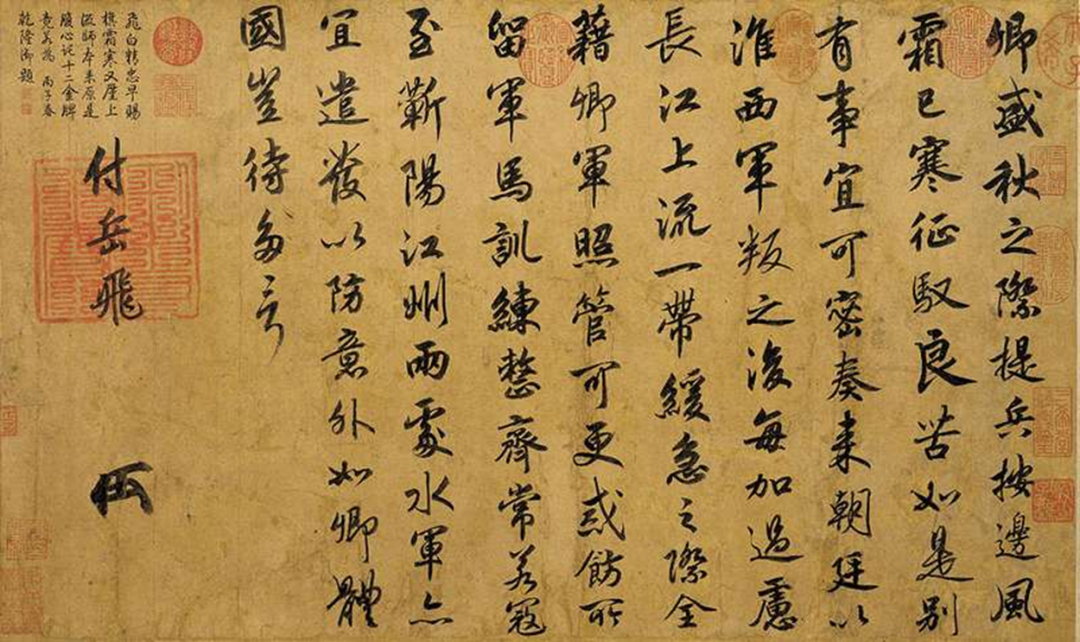 卿盛秋之際提兵按邊風
霜已寒征馭良苦如是別
有事宜可密奏来朝廷以
淮西軍叛之後每加過慮
長江上流一帶緩急之際全
藉卿軍照管可更戒飭所
留軍馬訓練整齊常若寇
至蘄陽江州兩處水軍亦
宜遣發以防意外如卿體
國豈待多言
付岳飛
飛白精忠早賜
旗霜寒又歷上
流師本来原是
腹心託十二金牌
竟若為 丙子春
乾隆御題